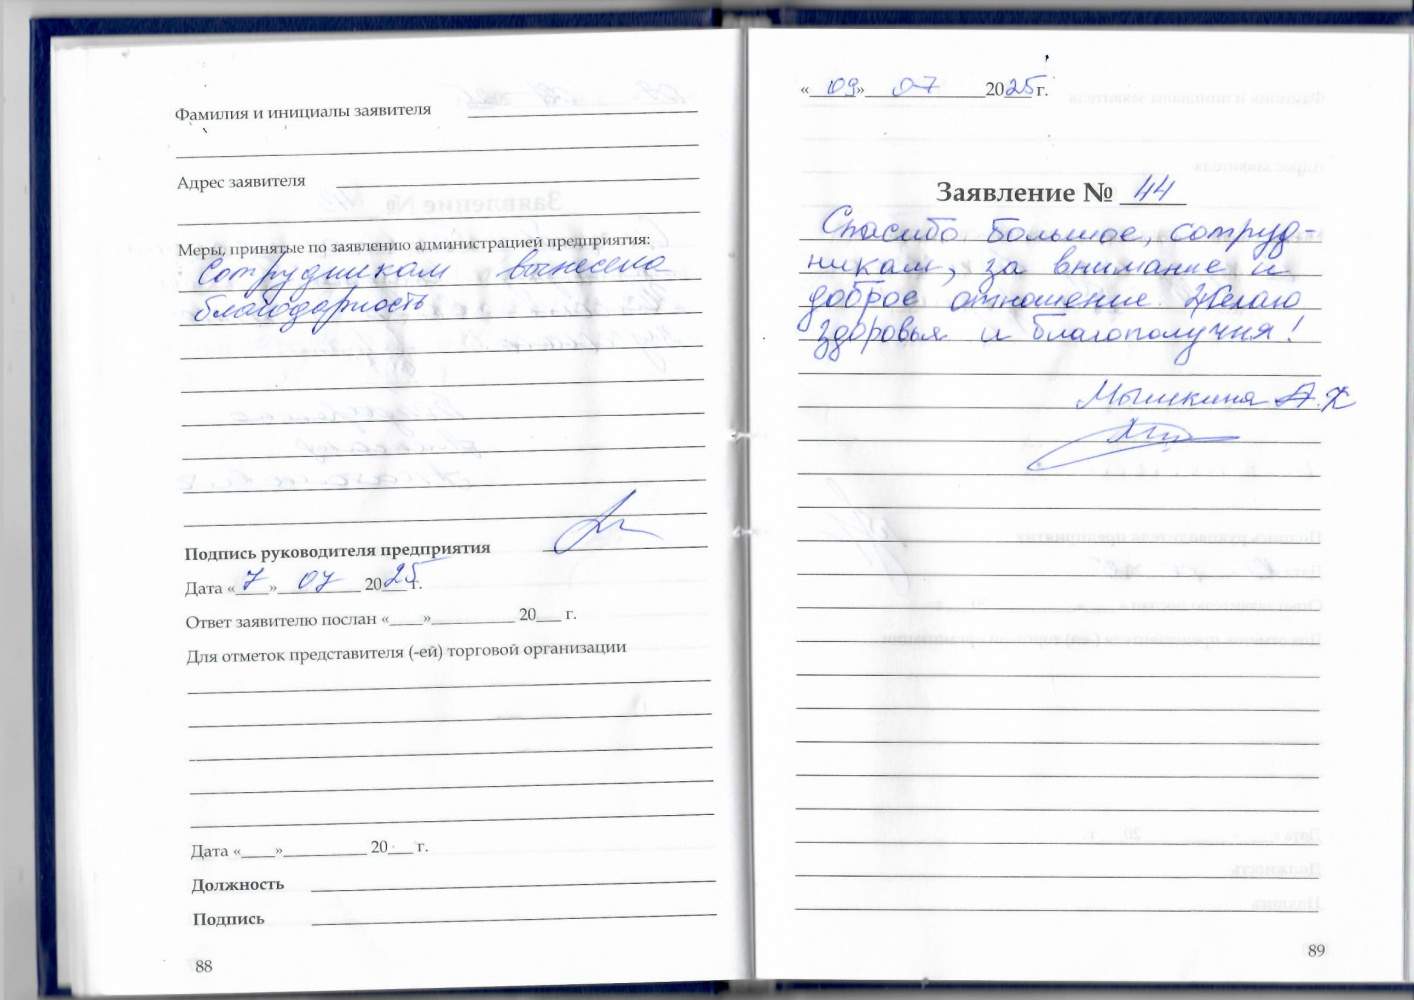 Фамилия и инициалы заявителя
Адрес заявителя
Меры, принятые по заявлению администрацией предприятия:
Сотрудникам вынесена
благодарность
Подпись руководителя предприятия
Дата «7» 07 2025 г.
Ответ заявителю послан «____»__________ 20___ г.
Для отметок представителя (-ей) торговой организации
Дата «____»__________ 20___ г.
Должность
Подпись
88
«09» 07 2025 г.
Заявление № 44
Спасибо большое, сотруд-
никам, за внимание и
доброе отношение. Желаю
здоровья и благополучия!
Мышкина А.Х
89